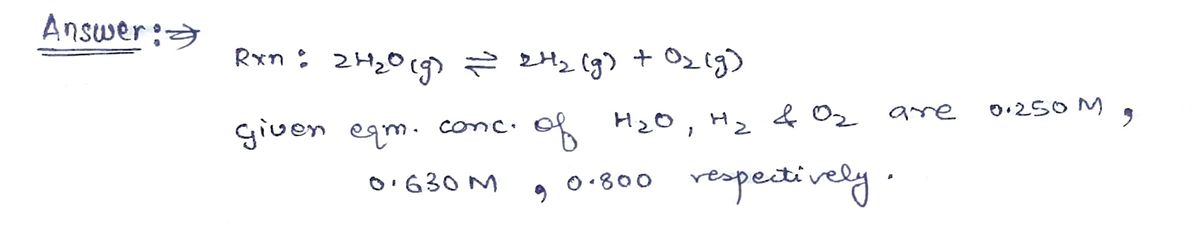 Answer :⇒
Rxn : 2H₂O(g) ⇌ 2H₂(g) + O₂(g)
given eqm. conc. of H₂O, H₂ & O₂ are 0.250 M,
0.630 M, 0.800 respectively.